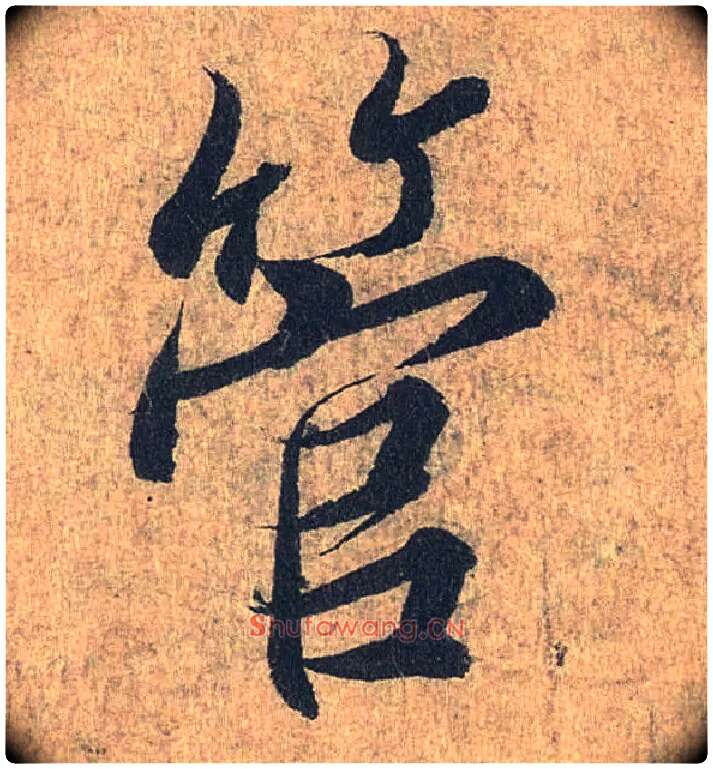 管
Shufawang.CN